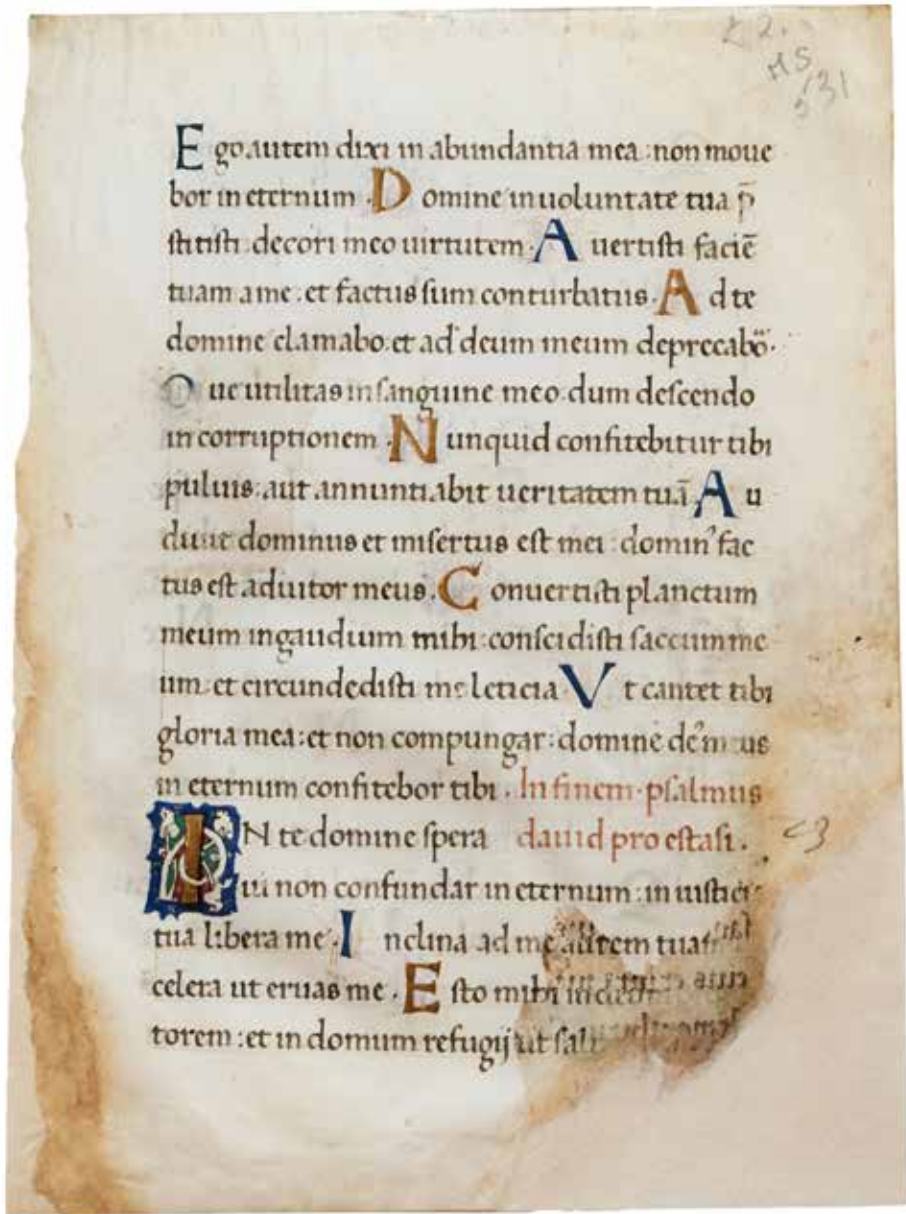 MS
531
Ego autem dixi in abundantia mea : non moue
bor in eternum . Domine in uoluntate tua p̄
ſtitiſti decori meo uirtutem . Auertiſti faciē
tuam a me : et factus ſum conturbatus . Ad te
domine clamabo : et ad deum meum deprecabō .
Que utilitas in ſanguine meo dum deſcendo
in corruptionem . Nunquid confitebitur tibi
puluis : aut annuntiabit ueritatem tuā Au
diuit dominus et miſertus eſt mei : domin' fac
tus eſt adiutor meus . Conuertiſti planctum
meum in gaudium mihi : conſcidiſti ſaccum me
um : et circundediſti me leticia Ut cantet tibi
gloria mea : et non compungar : domine de' meus
in eternum confitebor tibi . In finem · pſalmus
IN te domine ſpera dauid pro eſtaſi .
ui non confundar in eternum : in iuſtici
tua libera me . Inclina ad me aurem tuam
celera ut eruas me . Eſto mihi in
torem : et in domum refugij ut ſal